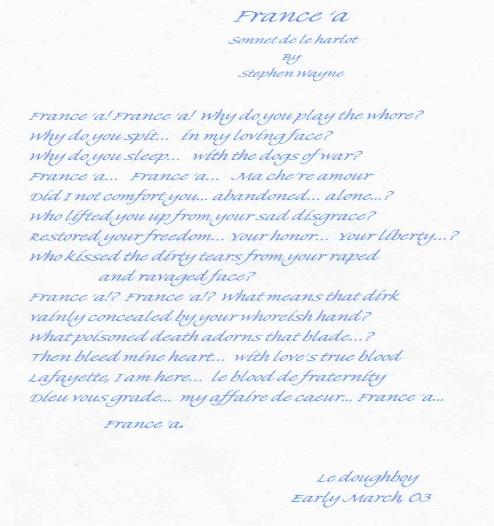 France 'a
Sonnet de le harlot
By
Stephen Wayne
France 'a! France 'a! Why do you play the whore?
Why do you spit... in my loving face?
Why do you sleep... with the dogs of war?
France 'a... France 'a... Ma che're amour
Did I not comfort you... abandoned... alone...?
Who lifted you up from your sad disgrace?
Restored your freedom... Your honor... Your liberty...?
Who kissed the dirty tears from your raped
and ravaged face?
France 'a!? France 'a!? What means that dirk
vainly concealed by your whoreish hand?
What poisoned death adorns that blade...?
Then bleed mine heart... with love's true blood
Lafayette, I am here... le blood de fraternity
Dieu vous grade... my affaire de caeur... France 'a...
France 'a.
Le doughboy
Early March, 03